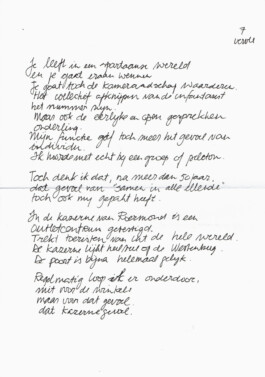 7
vervolg
Je leeft in een spartaanse wereld
en je gaat eraan wennen
Je gaat toch de kameraadschap waarderen.
Het collectief afknijpen van de infanterist
het nummer zijn.
Maar ook de eerlijke en open gesprekken
onderling.
Mijn functie gaf toch meer het gevoel van
individu.
Ik hoorde niet echt bij een groep of peloton.
Toch denk ik dat, na meer dan 50 jaar,
dat gevoel van "samen in alle ellende"
toch ook mij gepakt heeft.
In de kazerne van Roermond is een
Outletcentrum gevestigd.
Trekt toeristen van uit de hele wereld.
De kazerne lijkt heel veel op de Westenburg.
De poort is bijna helemaal gelijk.
Regelmatig loop ik er onderdoor,
niet voor de winkels
maar voor dat gevoel.
dat kazernegevoel.